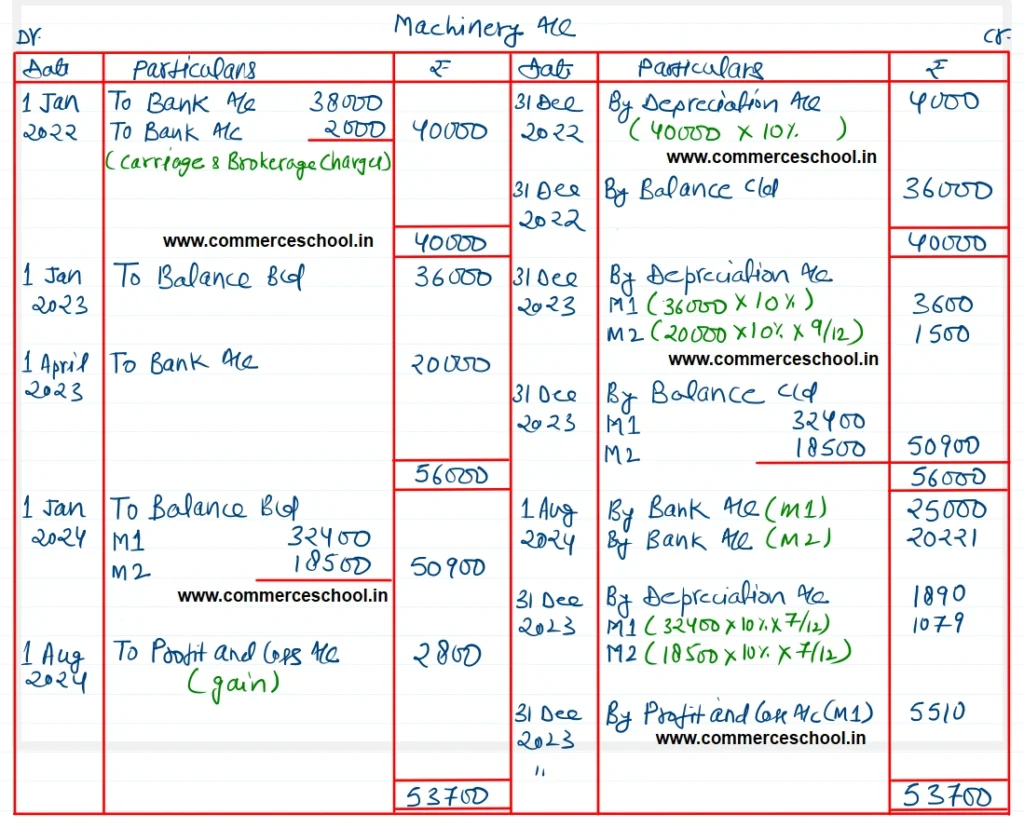 Machinery A/c
Dr. Cr.
Date Particulars ₹ Date Particulars ₹
1 Jan To Bank A/c 38000 31 Dec By Depreciation A/c 4000
2022 To Bank A/c 2000 40000 2022 (40000 x 10% )
(Carriage & Brokerage Charges) www.commerceschool.in
31 Dec By Balance c/d 36000
2022
www.commerceschool.in 40000 40000
1 Jan To Balance B/d 36000 31 Dec By Depreciation A/c
2023 2023 M1 (36000 x 10%) 3600
M2 (20000 x 10% x 9/12) 1500
1 April To Bank A/c 20000 www.commerceschool.in
2023 31 Dec By Balance c/d
2023 M1 32400
M2 18500 50900
56000 56000
1 Jan To Balance B/d 1 Aug By Bank A/c (M1) 25000
2024 M1 32400 2024 By Bank A/c (M2) 20221
M2 18500 50900
www.commerceschool.in 31 Dec By Depreciation A/c 1890
2023 M1 (32400 x 10% x 7/12) 1079
1 Aug To Profit and Loss A/c 2800 M2 (18500 x 10% x 7/12)
2024 (gain)
31 Dec By Profit and Loss A/c (M1) 5510
2023 www.commerceschool.in
"
53700 53700